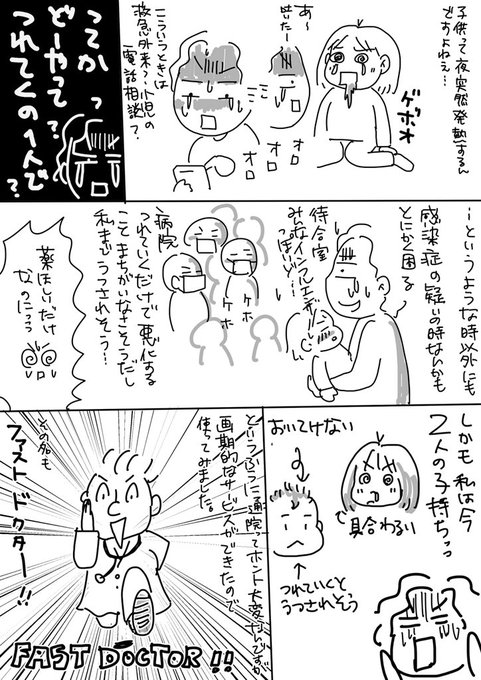 子供って夜突然発熱するん
ですよねぇ…
ゲボォ
あ〜
吐いたー
オロ
オロ
オロ
こういうときは
救急外来?小児の
電話相談?
ってかっ
どーやって?
つれてくの1人で
?
…というような時以外にも
感染症の疑いの時なんかも
とにかく困る
待合室
みんなインフルエンザ
っぽいぞ…
ケホ
ケホ
病院
つれていくだけで悪化する
ことまちがいなさそうだし
私までうつされそう…
薬ほしいだけ
なのにっっ
しかも私は今
2人の子持ちっっ
具合わるい
おいてけない
つれていくと
うつされそう
というふうに通院ってホント大変なんですが
画期的なサービスができたので
使ってみました。
その名も
ファストドクター!!
FAST DOCTOR!!